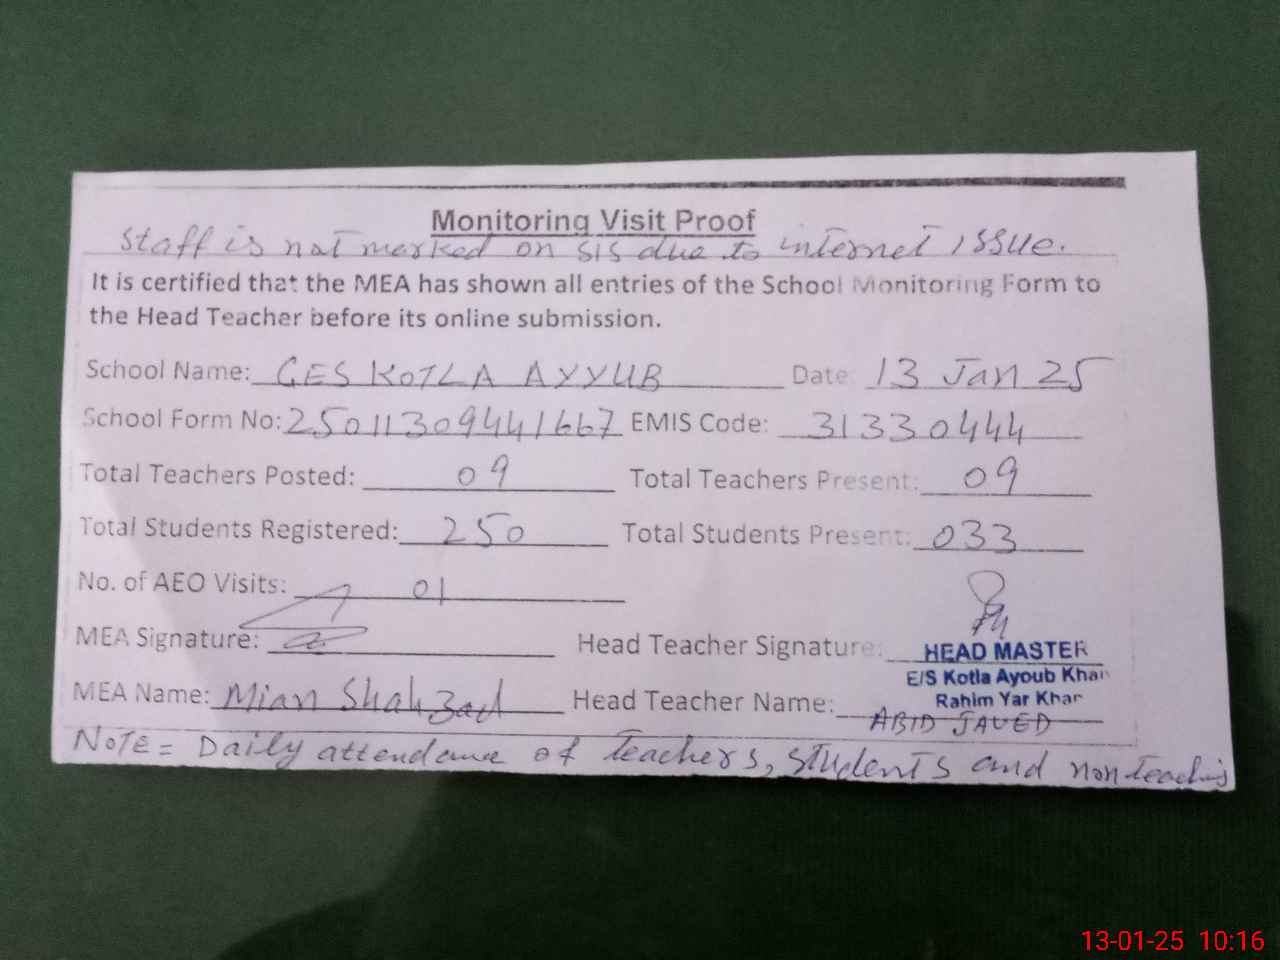 Monitoring Visit Proof
staff is not marked on SIS due to internet issue.
It is certified that the MEA has shown all entries of the School Monitoring Form to
the Head Teacher before its online submission.
School Name: GES KOTLA AYYUB Date: 13 Jan 25
School Form No: 25011309441667 EMIS Code: 31330444
Total Teachers Posted: 09 Total Teachers Present: 09
Total Students Registered: 250 Total Students Present: 033
No. of AEO Visits: 01
MEA Signature: Head Teacher Signature:
HEAD MASTER
E/S Kotla Ayoub Khan
Rahim Yar Khan
MEA Name: Mian Shahzad Head Teacher Name: ABID JAVED
NOTE = Daily attendance of teachers, students and non teaching
13-01-25 10:16